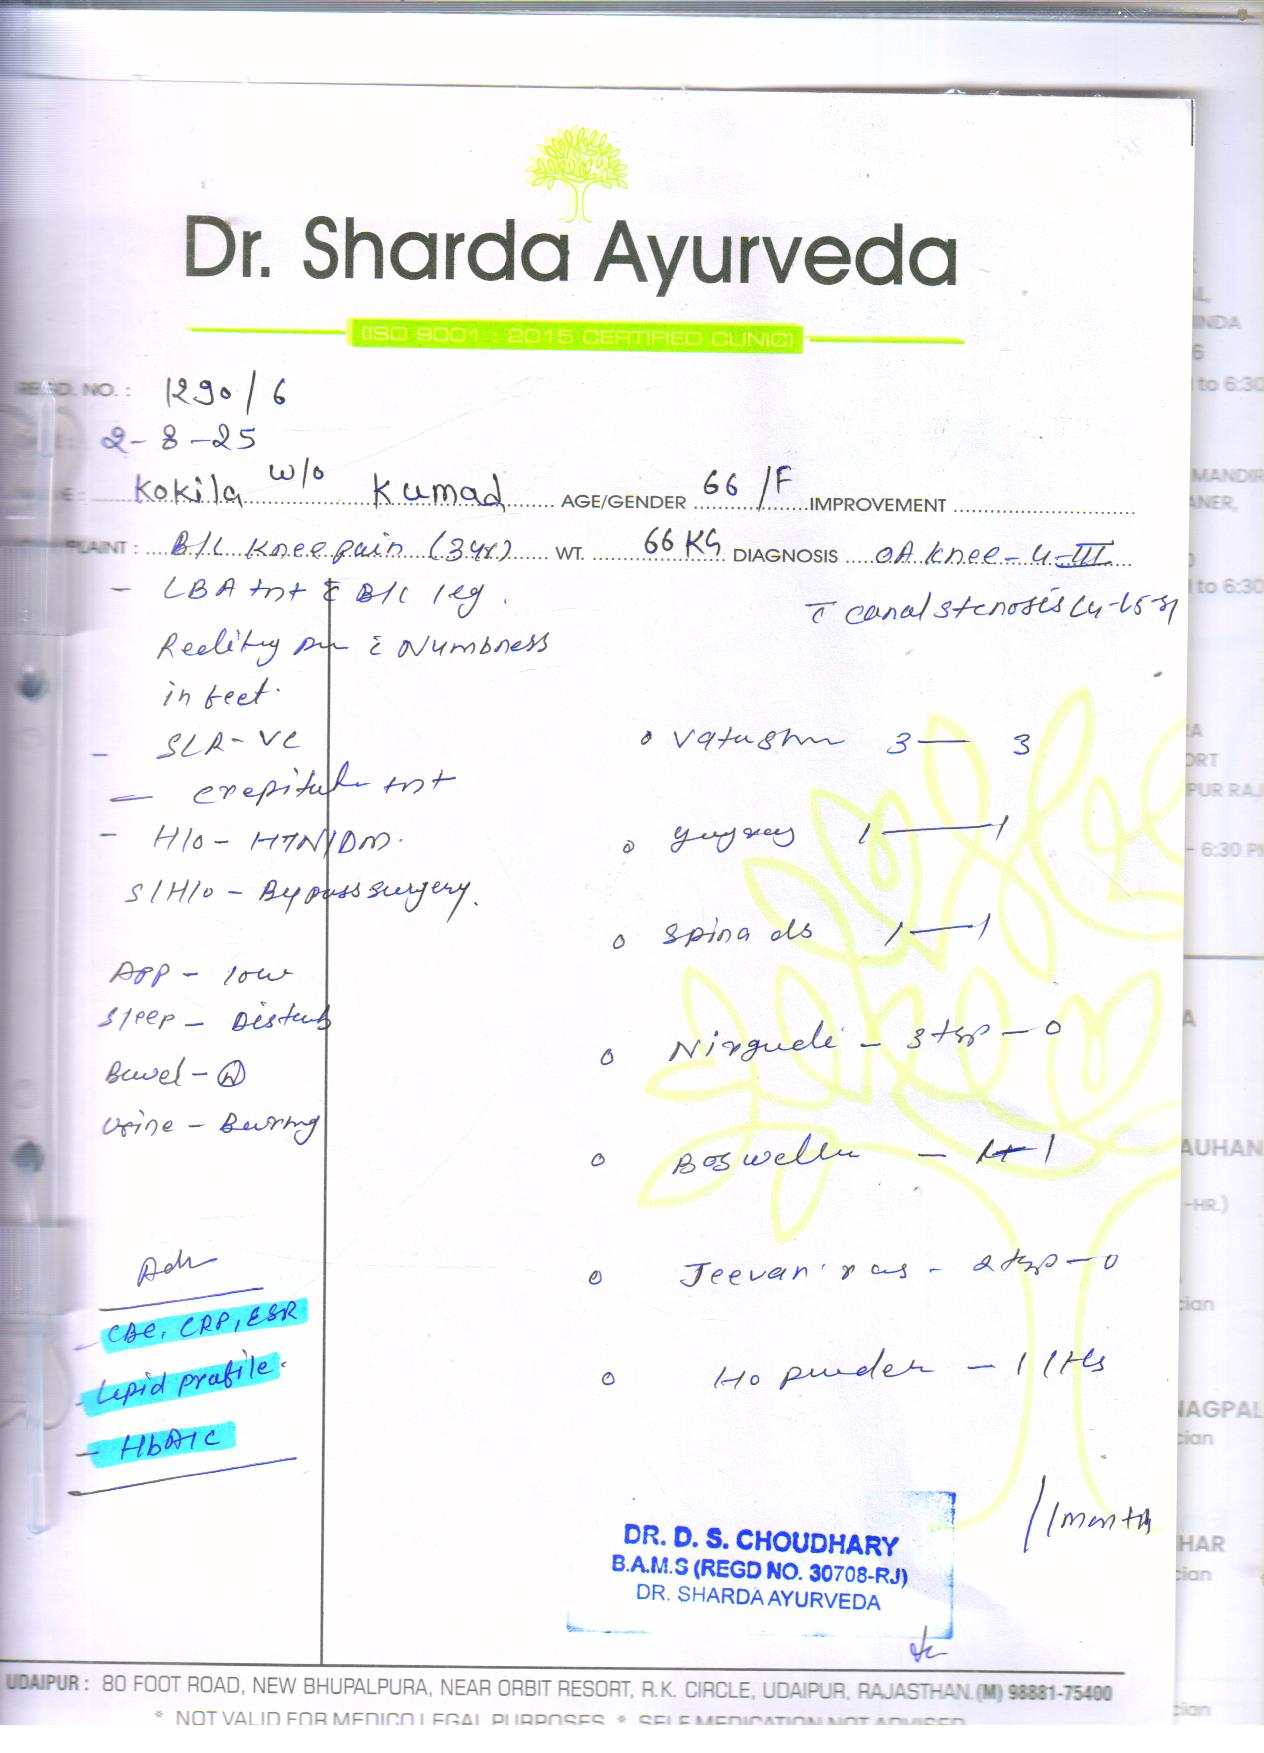 Dr. Sharda Ayurveda
(ISO 9001 : 2015 CERTIFIED CLINIC)
REGD. NO. : 1290/6
2-8-25
Kokila w/o Kumad AGE/GENDER 66/F IMPROVEMENT
PLAINT : B/L Knee pain (3yr) WT. 66 KG DIAGNOSIS OA knee - G-III
c̄ canal stenosis L4-L5-S1
- LBA tnt c̄ B/L leg.
c̄ Numbness
in feet.
- SLR - +ve
- crepitus tnt
- H/o - HTN/DM.
S/H/o - Bypass surgery.
App - low
Sleep - Disturb
Bowel - N
Urine - Burning
Adv
- CBC, CRP, ESR
- Lipid profile.
- HbA1C
Vatashm 3 — 3
1 — 1
Spina ds 1 — 1
Nirgudi - 3 tsp - 0
Boswellu - 1+1
Jeevan ras - 2 tsp - 0
Ho powder - 1 1 HS
/1 month
DR. D. S. CHOUDHARY
B.A.M.S (REGD NO. 30708-RJ)
DR. SHARDA AYURVEDA
UDAIPUR : 80 FOOT ROAD, NEW BHUPALPURA, NEAR ORBIT RESORT, R.K. CIRCLE, UDAIPUR, RAJASTHAN.(M) 98881-75400
* NOT VALID FOR MEDICO LEGAL PURPOSES * SELF MEDICATION NOT ADVISED
INDA
6
to 6:30
MANDIR
ANER,
to 6:30
RA
ORT
PUR RAJ
- 6:30 PM
A
AUHAN
-HR.)
cian
NAGPAL
cian
HAR
cian
cian